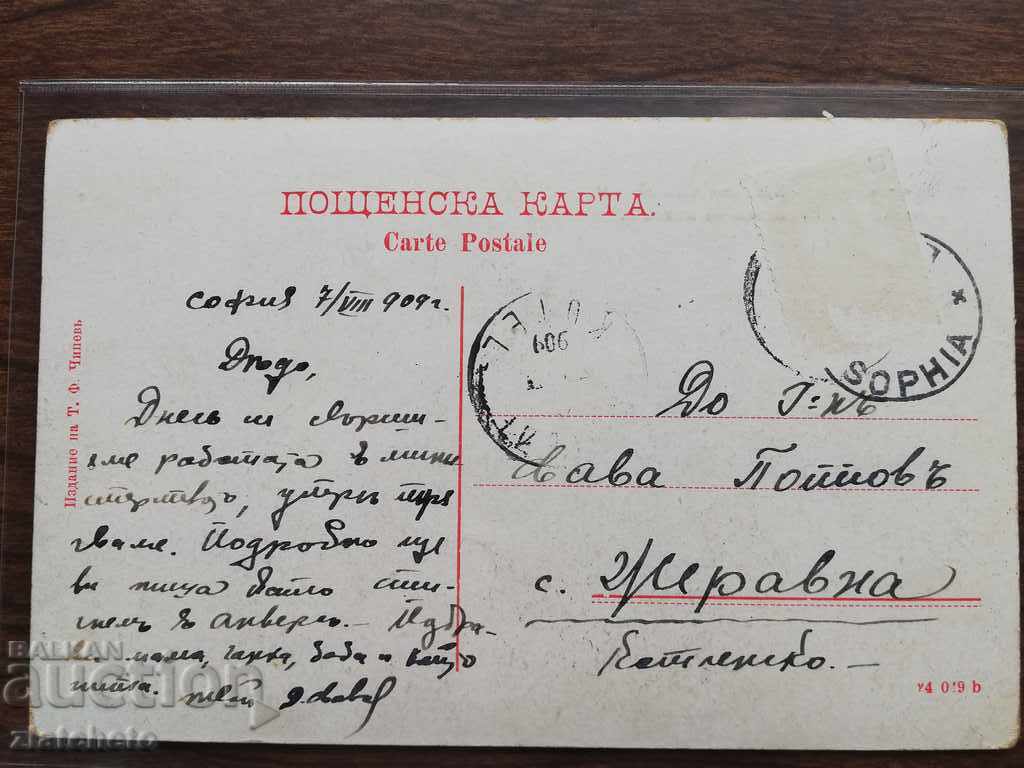 ПОЩЕНСКА КАРТА.
Carte Postale
Издание на Т. Ф. Чипевъ
София 7/VIII 909 г.
Дядо,
Днесъ ни свърши-
хме работата въ мини
стерството, утре тръ
гваме. Подробно ще
ви пиша
стиг-
немъ въ
мама, баба и
Сава
909
SOPHIA
До Г-нъ
Сава Поповъ
с. Жеравна
Котленско.
24 049 b
BALKAN
auction
zlatcheto